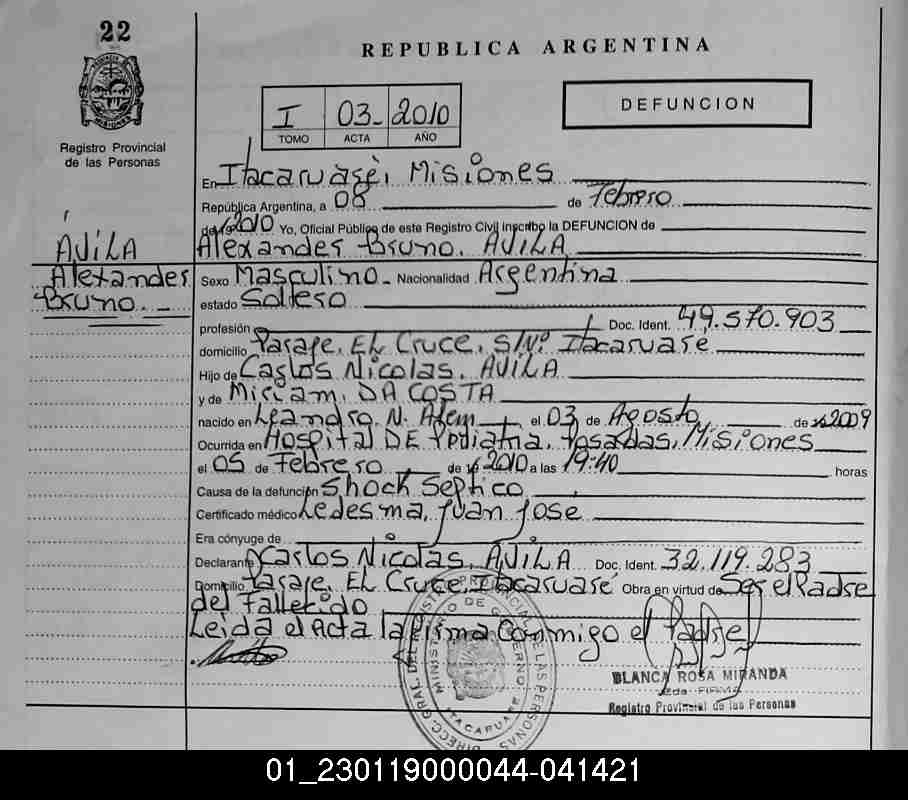 22
REPUBLICA ARGENTINA
Registro Provincial
de las Personas
I 03- 2010
TOMO ACTA AÑO
DEFUNCION
En Itacaruaré, Misiones
República Argentina, a 08 de Febrero
de 2010 Yo, Oficial Público de este Registro Civil inscribo la DEFUNCION de
AVILA
Alexander
Bruno.-
Alexander Bruno. AVILA
Sexo Masculino.- Nacionalidad Argentina
estado Soltero
profesión Doc. Ident. 49.570.903
domicilio Paraje. EL Cruce. S/Nº Itacaruaré
Hijo de Carlos Nicolas. AVILA
y de Miriam. DA COSTA
nacido en Leandro. N. Alem el 03 de Agosto de 2009
Ocurrida en Hospital DE Pediatria. Posadas. Misiones
el 05 de Febrero de 2010 a las 19:40 horas
Causa de la defunción Shock Septico
Certificado médico Ledesma, Juan José
Era cónyuge de
Declarante Carlos Nicolas. AVILA Doc. Ident. 32.119.283
Domicilio Paraje. EL Cruce. Itacaruaré Obra en virtud de Ser el Padre
del fallecido
Leida el Acta la firma conmigo el Padre
BLANCA ROSA MIRANDA
Registro Provincial de las Personas
MINISTERIO DE GOBIERNO
ITACARUARE
01_230119000044-041421